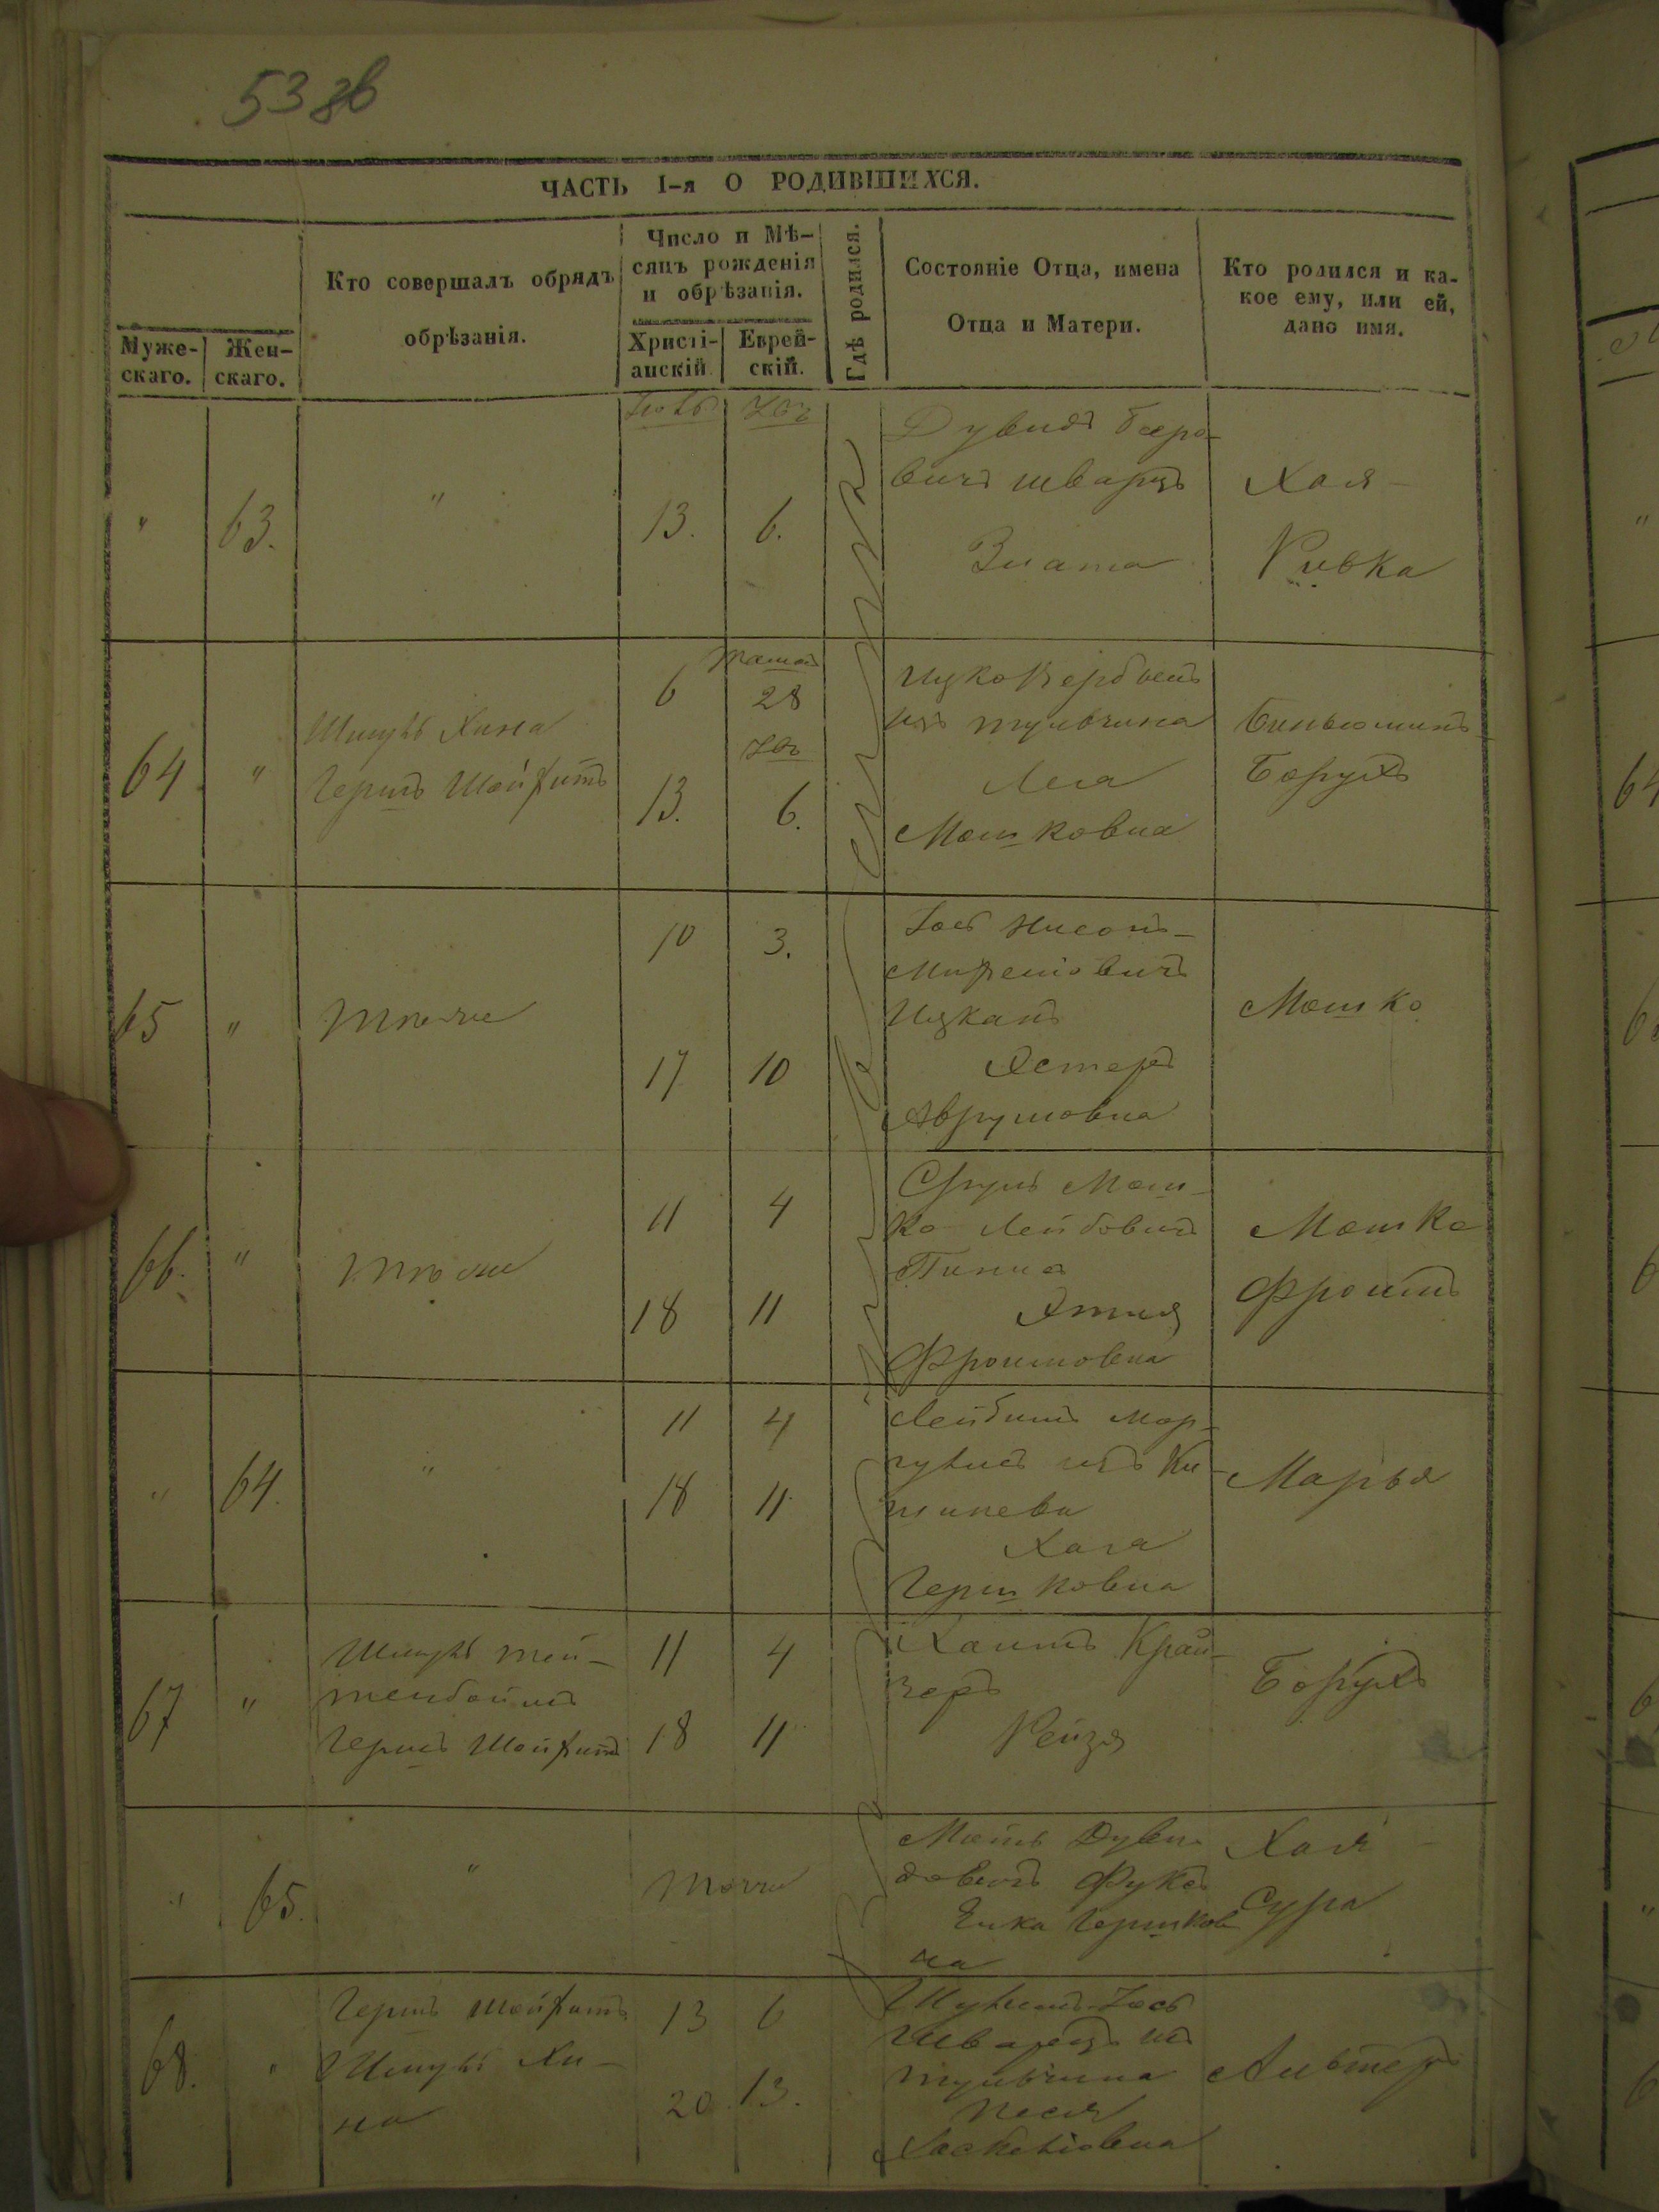 53 зв
ЧАСТЬ I-я О РОДИВШИХСЯ.
Муже-
скаго.
Жен-
скаго.
Кто совершалъ обрядъ
обрѣзанія.
Число и Мѣ-
сяцъ рожденія
и обрѣзанія.
Христі-
анскій.
Еврей-
скій.
Гдѣ родился.
Состояніе Отца, имена
Отца и Матери.
Кто родился и ка-
кое ему, или ей,
дано имя.
"
63.
"
13.
6.
Дувидъ Беро-
вичъ Шварцъ
Злата
Хая
Ривка
64
"
Шмуль Хина
Гершъ Шойфитъ
6
28
13.
6.
Ицко Вербъ
изъ Тульчина
Лея
Мошковна
Биньюминъ
Борухъ
65
"
Тѣже
10
3.
17
10
Іосъ Нисонъ
Ицканъ
Эстеръ
Аврумовна
Мошко
66.
"
Тѣже
11
4
18
11
Сруль Мош-
ко Лейбовичъ
Этля
Фроимовна
Мошко
Фроимъ
"
64.
"
11
4
18
11
Лейбишъ Мар-
гулисъ изъ Ки-
шинева
Хая
Гершковна
Марья
67
"
Шмуль Тей-
тенбоймъ
Гершъ Шойфитъ
11
4
18
11
Хаимъ Край-
зеръ
Рейзя
Борухъ
"
65.
"
Тоже
Дуви-
довичъ Фуксъ
Гершков
на
Хая
Сура
68.
"
Гершъ Шойфитъ
Шмуль Хи-
на
13
6
20
13.
Шулимъ Іось
Шварцъ изъ
Тульчина
Песя
Хаскеліовна
Альтеръ